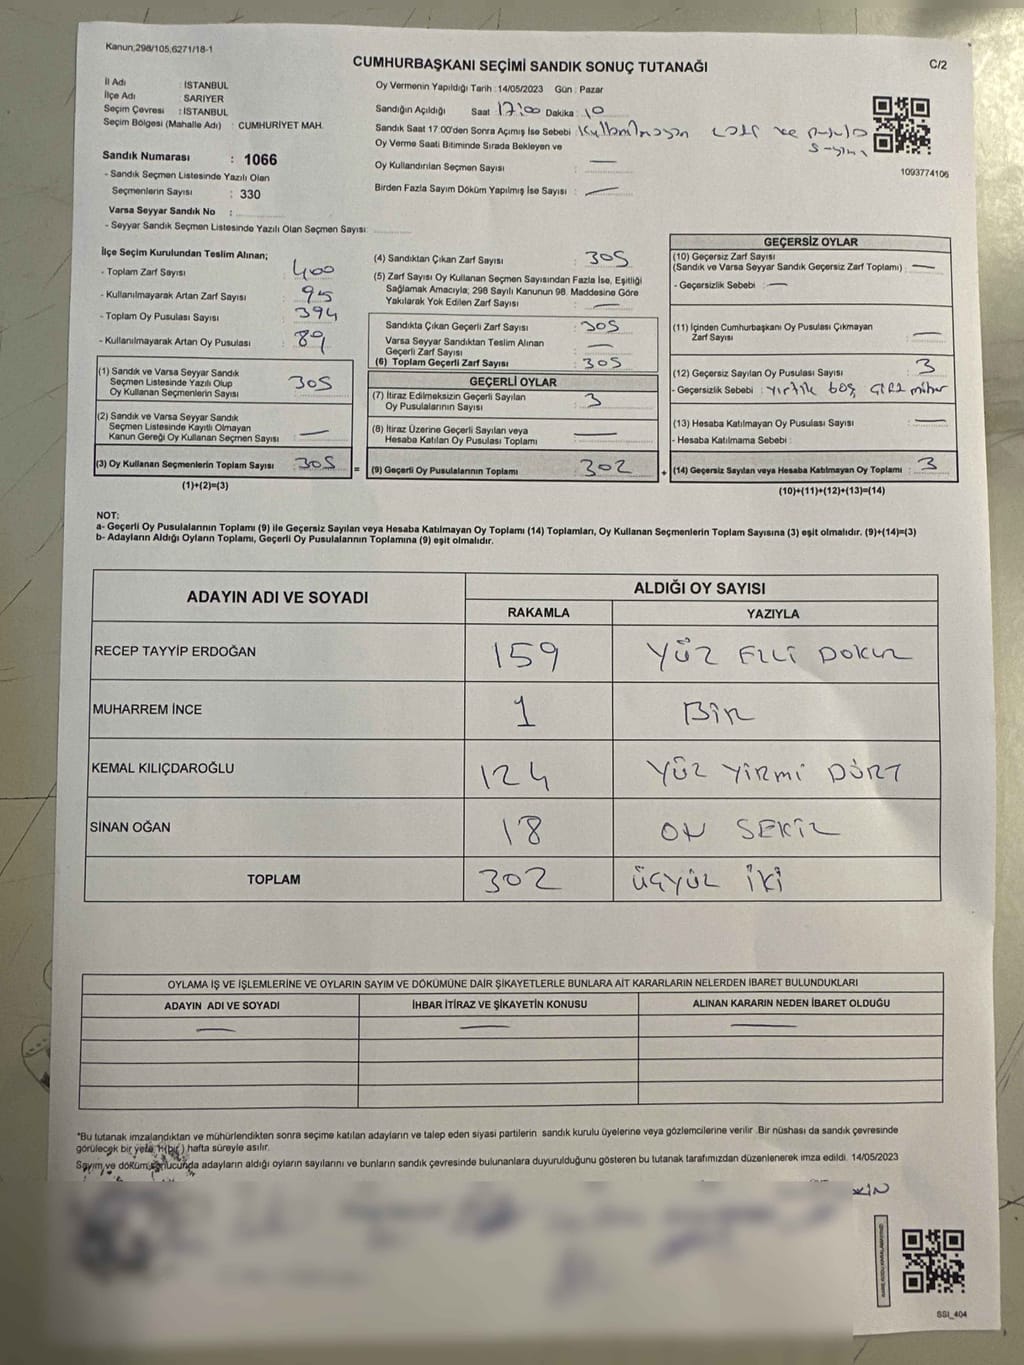 Kanun;298/105,6271/18-1
CUMHURBAŞKANI SEÇİMİ SANDIK SONUÇ TUTANAĞI
C/2
İl Adı : İSTANBUL
İlçe Adı : SARIYER
Seçim Çevresi : İSTANBUL
Seçim Bölgesi (Mahalle Adı) : CUMHURİYET MAH.
Sandık Numarası : 1066
- Sandık Seçmen Listesinde Yazılı Olan
Seçmenlerin Sayısı : 330
Varsa Seyyar Sandık No :
- Seyyar Sandık Seçmen Listesinde Yazılı Olan Seçmen Sayısı:
Oy Vermenin Yapıldığı Tarih :14/05/2023 Gün : Pazar
Sandığın Açıldığı Saat 17:00 Dakika : 10
Sandık Saat 17:00'den Sonra Açımış İse Sebebi : Kullanılmayan ve pusula
sayımı
Oy Verme Saati Bitiminde Sırada Bekleyen ve
Oy Kullandırılan Seçmen Sayısı : —
Birden Fazla Sayım Döküm Yapılmış İse Sayısı : —
1093774106
İlçe Seçim Kurulundan Teslim Alınan;
- Toplam Zarf Sayısı : 400
- Kullanılmayarak Artan Zarf Sayısı : 95
- Toplam Oy Pusulası Sayısı : 394
- Kullanılmayarak Artan Oy Pusulası : 89
(1) Sandık ve Varsa Seyyar Sandık
Seçmen Listesinde Yazılı Olup
Oy Kullanan Seçmenlerin Sayısı : 305
(2) Sandık ve Varsa Seyyar Sandık
Seçmen Listesinde Kayıtlı Olmayan
Kanun Gereği Oy Kullanan Seçmen Sayısı : —
(3) Oy Kullanan Seçmenlerin Toplam Sayısı : 305
(1)+(2)=(3)
=
(4) Sandıktan Çıkan Zarf Sayısı : 305
(5) Zarf Sayısı Oy Kullanan Seçmen Sayısından Fazla İse, Eşitliği
Sağlamak Amacıyla; 298 Sayılı Kanunun 98. Maddesine Göre
Yakılarak Yok Edilen Zarf Sayısı : —
Sandıkta Çıkan Geçerli Zarf Sayısı : 305
Varsa Seyyar Sandıktan Teslim Alınan
Geçerli Zarf Sayısı : —
(6) Toplam Geçerli Zarf Sayısı : 305
GEÇERLİ OYLAR
(7) İtiraz Edilmeksizin Geçerli Sayılan
Oy Pusulalarının Sayısı : 3
(8) İtiraz Üzerine Geçerli Sayılan veya
Hesaba Katılan Oy Pusulası Toplamı : —
(9) Geçerli Oy Pusulalarının Toplamı : 302
+
GEÇERSİZ OYLAR
(10) Geçersiz Zarf Sayısı
(Sandık ve Varsa Seyyar Sandık Geçersiz Zarf Toplamı) : —
- Geçersizlik Sebebi : —
(11) İçinden Cumhurbaşkanı Oy Pusulası Çıkmayan
Zarf Sayısı : —
(12) Geçersiz Sayılan Oy Pusulası Sayısı : 3
- Geçersizlik Sebebi : yırtık boş mühür
(13) Hesaba Katılmayan Oy Pusulası Sayısı : —
- Hesaba Katılmama Sebebi :
(14) Geçersiz Sayılan veya Hesaba Katılmayan Oy Toplamı : 3
(10)+(11)+(12)+(13)=(14)
NOT:
a- Geçerli Oy Pusulalarının Toplamı (9) ile Geçersiz Sayılan veya Hesaba Katılmayan Oy Toplamı (14) Toplamları, Oy Kullanan Seçmenlerin Toplam Sayısına (3) eşit olmalıdır. (9)+(14)=(3)
b- Adayların Aldığı Oyların Toplamı, Geçerli Oy Pusulalarının Toplamına (9) eşit olmalıdır.
ADAYIN ADI VE SOYADI
ALDIĞI OY SAYISI
RAKAMLA YAZIYLA
RECEP TAYYİP ERDOĞAN 159 YÜZ ELLİ DOKUZ
MUHARREM İNCE 1 BİR
KEMAL KILIÇDAROĞLU 124 YÜZ YİRMİ DÖRT
SİNAN OĞAN 18 ON SEKİZ
TOPLAM 302 ÜÇYÜZ İKİ
OYLAMA İŞ VE İŞLEMLERİNE VE OYLARIN SAYIM VE DÖKÜMÜNE DAİR ŞİKAYETLERLE BUNLARA AİT KARARLARIN NELERDEN İBARET BULUNDUKLARI
ADAYIN ADI VE SOYADI İHBAR İTİRAZ VE ŞİKAYETİN KONUSU ALINAN KARARIN NEDEN İBARET OLDUĞU
— — —
*Bu tutanak imzalandıktan ve mühürlendikten sonra seçime katılan adayların ve talep eden siyasi partilerin sandık kurulu üyelerine veya gözlemcilerine verilir .Bir nüshası da sandık çevresinde
görülecek bir yere 1(bir) hafta süreyle asılır.
Sayım ve döküm sonucunda adayların aldığı oyların sayılarını ve bunların sandık çevresinde bulunanlara duyurulduğunu gösteren bu tutanak tarafımızdan düzenlenerek imza edildi. 14/05/2023
SSI_404